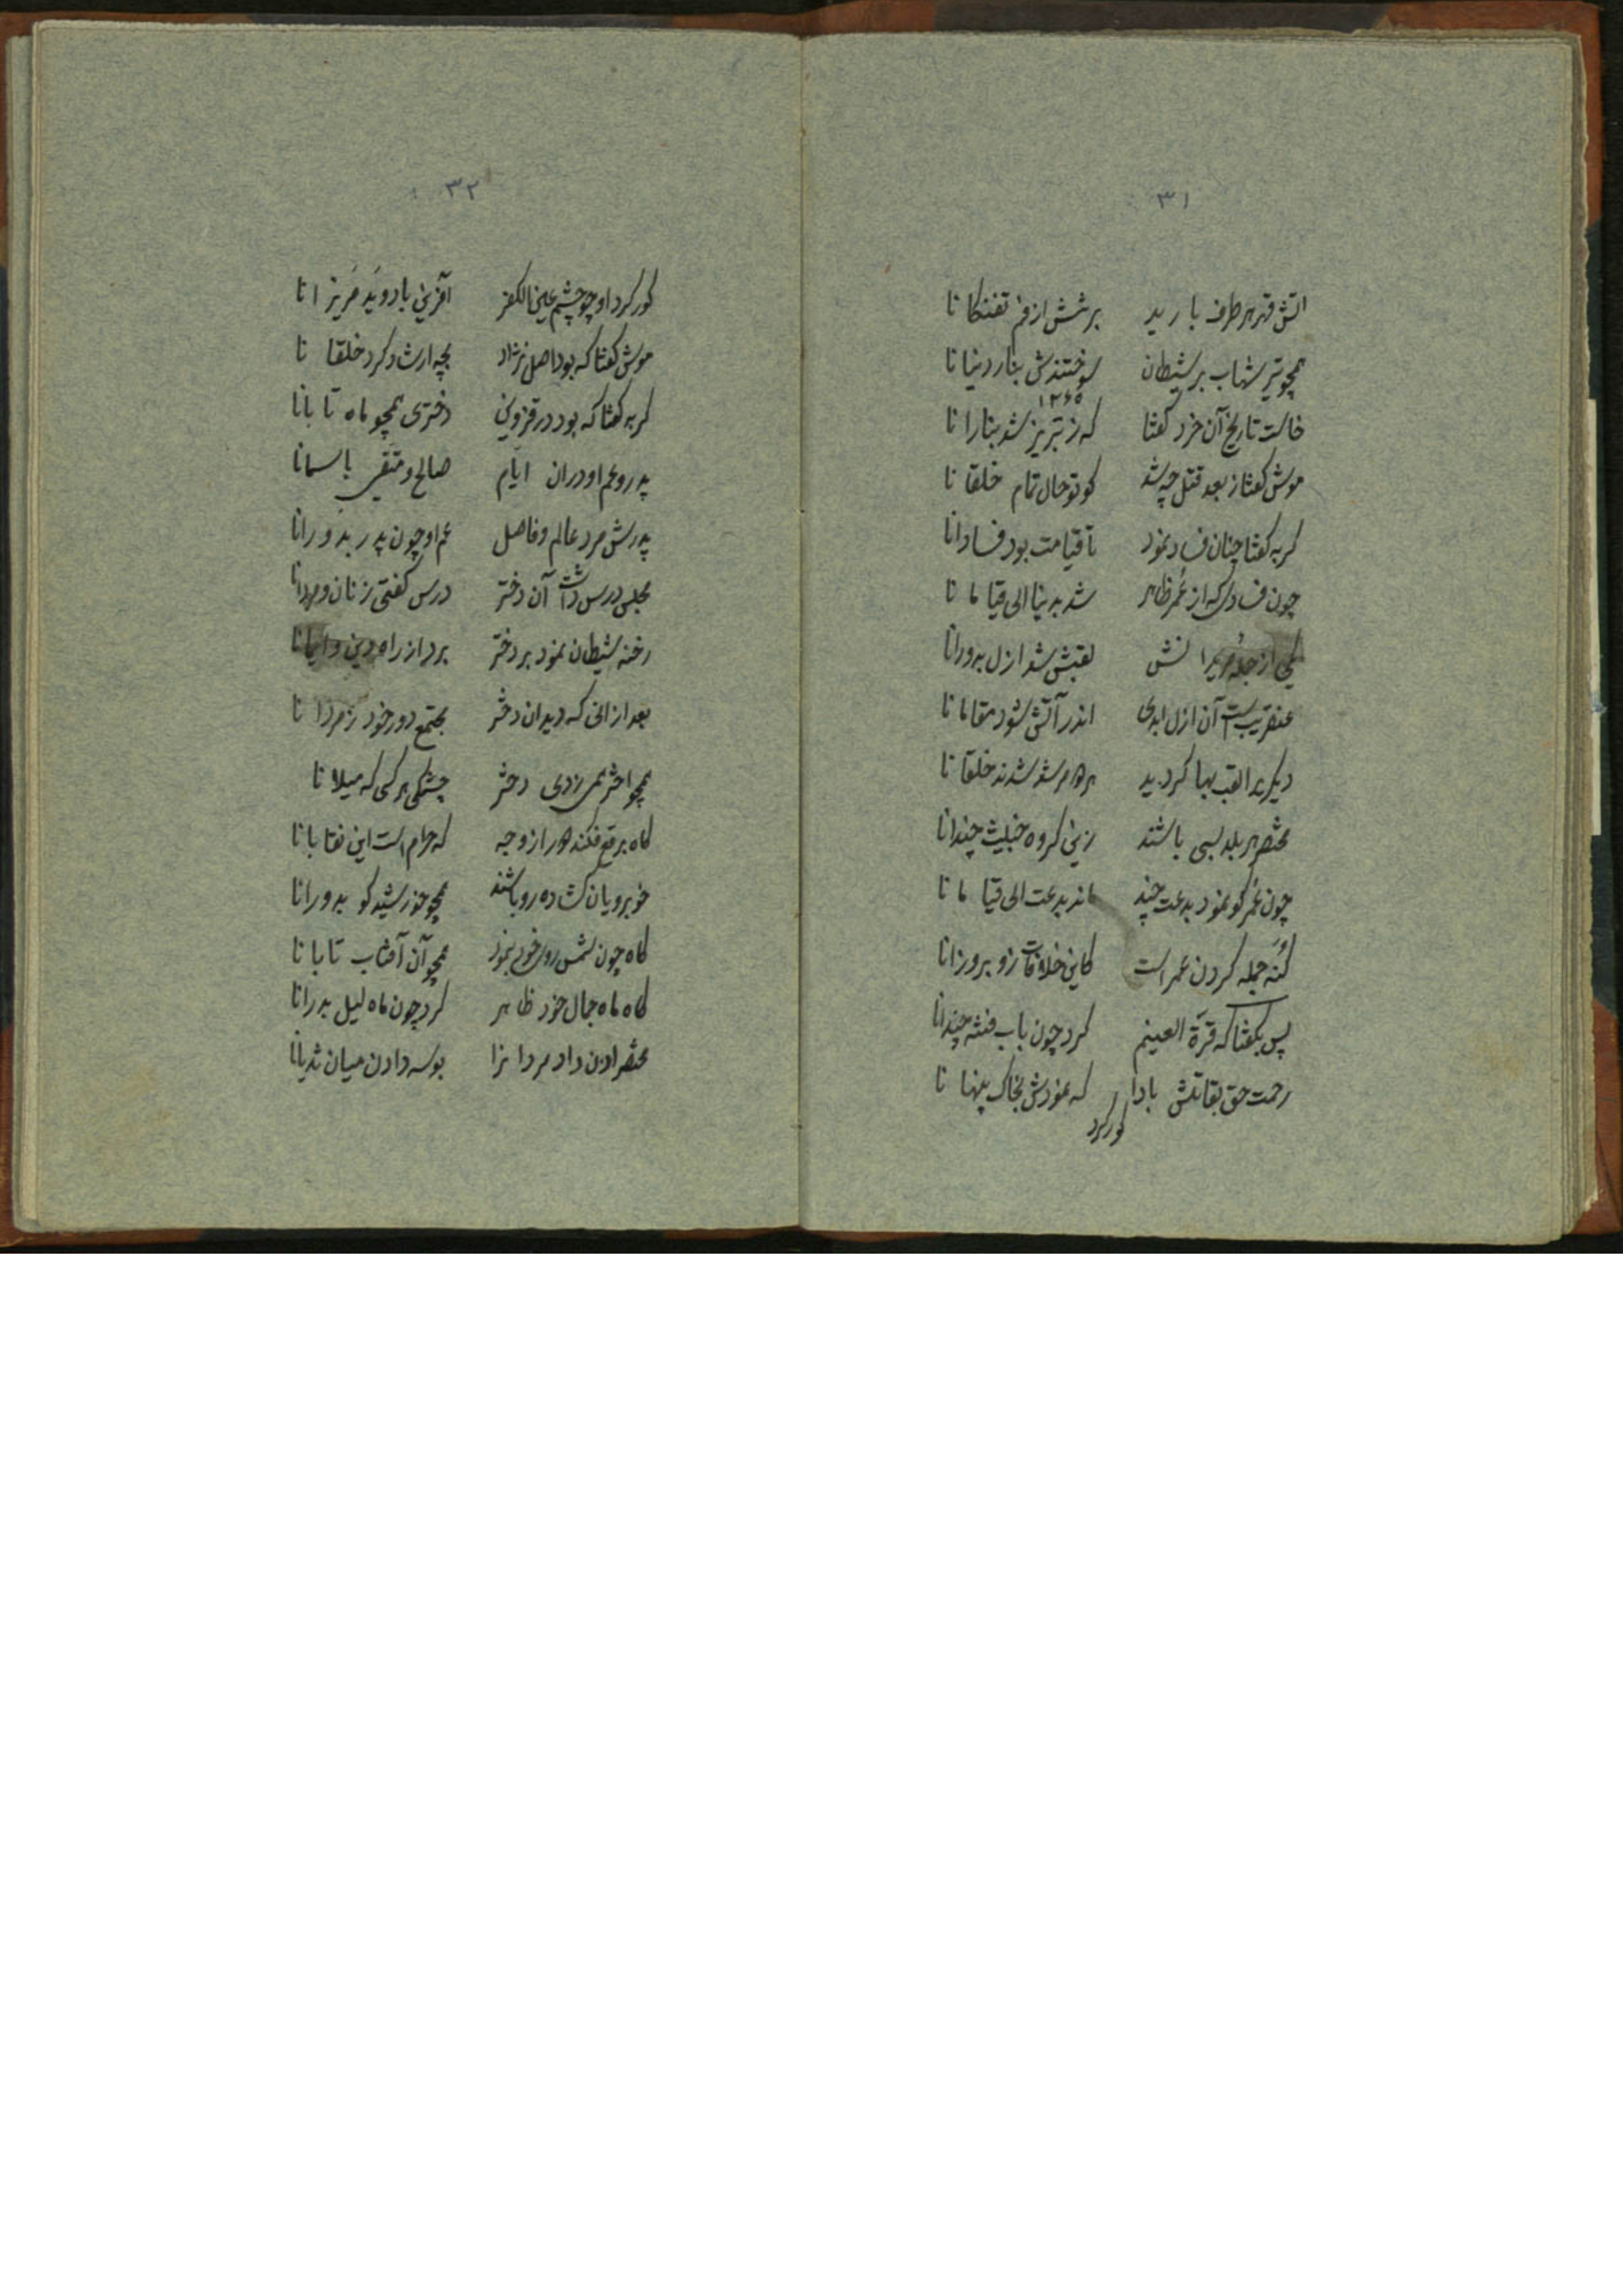 ۳۱
اتش قهر هر طرف بارید برشش از فم تفنکانا
همچو تیر شهاب بر شیطان سوختندش بنار دنیانا
۱۲۶۵
خاست تاریخ آن خرد کفتا که ز تبریز شد بنارانا
موش کفتا ز بعد قتل چه شد کو تو حال تمام خلقانا
کربه کفتا چنان فساد نمود تا قیامت بود فسادانا
چون فسادی که از عُمَر ظاهر شد بدنیا الی قیامانا
یکی از جمله مریدانش لقبش شد ازل بدورانا
عنقریبست آن ازل ابدی اندر آتش شود مقامانا
دیکریرا لقب بها کردید بهر او مرشد شدند خلقانا
مختصر هر بلد بسی باشند زین کروه خبیث چندانا
چون عُمَر کو نمود بدعت چند ماند بدعت الی قیامانا
کُنَه جمله کردن عمر است کاین خلافات زو بروزانا
پس بکفتا که قرّة العینم کرد چون باب فتنه چندانا
رحمت حق بقاتلش بادا که نمودش بخاک پنهانا
کور کرد
۳۲
کور کرد او چو چشم عین الکفر آفرین باد و ید مریزانا
موش کفتا که بود اصل نژاد بچه ارشاد کرد خلقانا
کربه کفتا که بود در قزوین دختری همچو ماه تابانا
پدر و عم او دران ایّام صالح و متّقی باسمانا
پدرش مرد عالم و فاضل عم او چون پدر بدورانا
مجلس درس داشت آن دختر درس کفتی زنان و مردانا
رخنه شیطان نمود بر دختر برد از راه دین و ایمانا
بعد ازانی که دید ان دختر مجتمع دور خود ز مردانا
همچو اختر همی زدی دختر چشمکی هر کسی که میلانا
کاه برقع فکند دور از وجه که حرام است این نقابانا
خوبرویان کشاده رو باشند همچو خورشید کو بدورانا
کاه چون شمس روی خود بنمود همچو آن آفتاب تابانا
کاه ماه جمال خود ظاهر کرد چون ماه لیل بدرانا
مختصر اذن داد مردانرا بوسه دادن میان ثدیانا